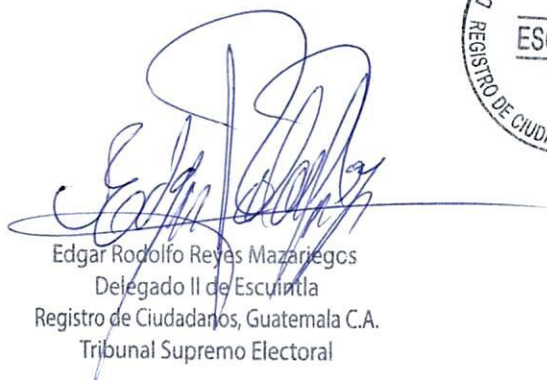 ESC
REGISTRO DE CIUD
Edgar Rodolfo Reyes Mazariegos
Delegado II de Escuintla
Registro de Ciudadanos, Guatemala C.A.
Tribunal Supremo Electoral